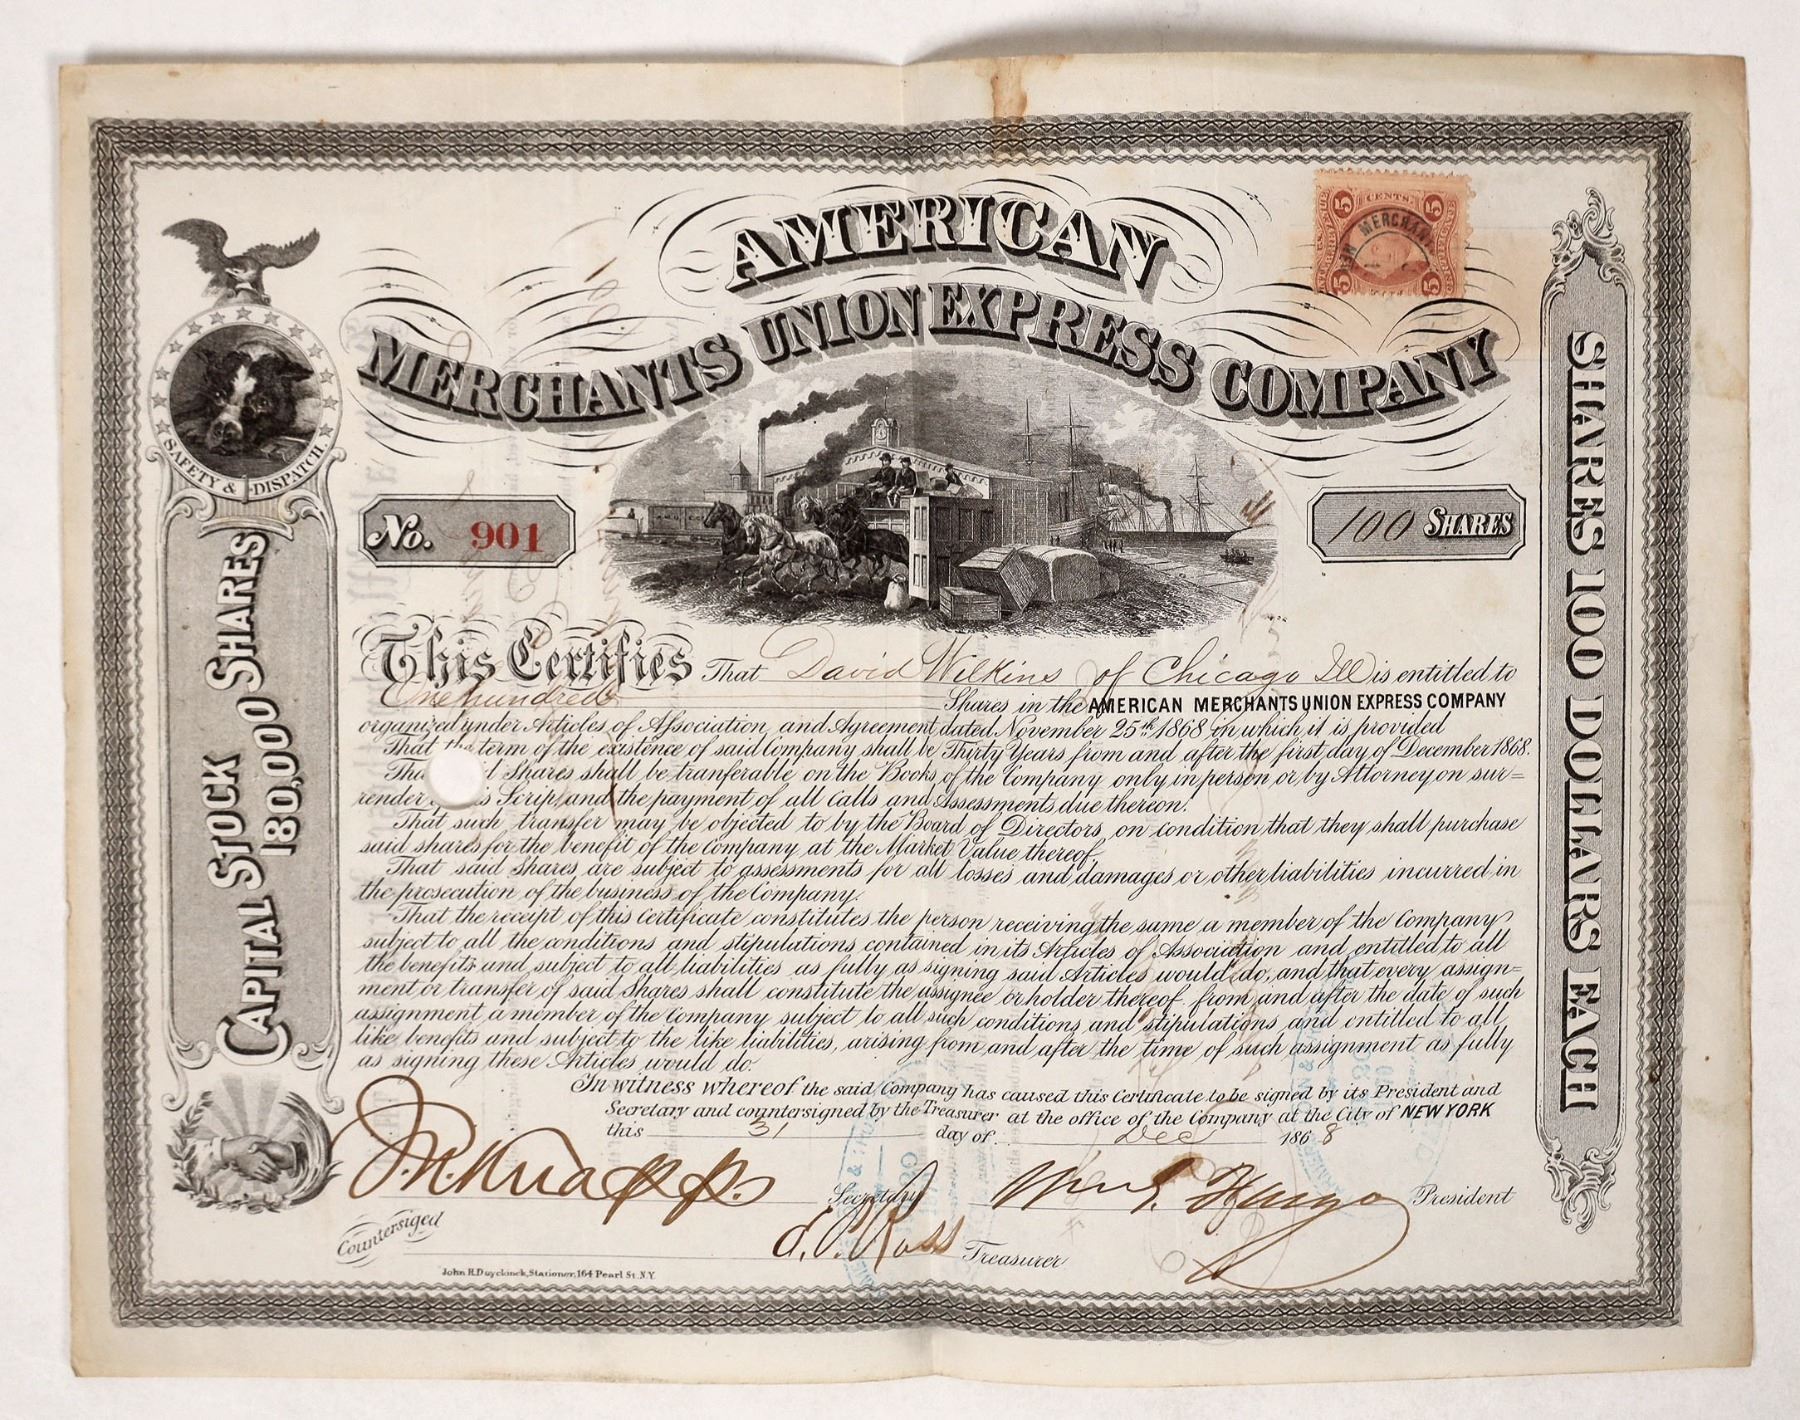 AMERICAN
MERCHANTS UNION EXPRESS COMPANY
5 CENTS. 5
MERCHAN
5 5
SAFETY & DISPATCH
CAPITAL STOCK 180,000 SHARES
No. 901
100 SHARES
SHARES 100 DOLLARS EACH
This Certifies That David Wilkins of Chicago Ill is entitled to
One hundred Shares in the AMERICAN MERCHANTS UNION EXPRESS COMPANY
organized under Articles of Association, and Agreement dated November 25th 1868 in which it is provided
That the term of the existence of said Company shall be Thirty Years from and after the first day of December 1868.
Shares shall be tranferable on the Books of the Company only in person or by Attorney on sur=
render Scrip, and the payment of all Calls and Assessments due thereon.
That such transfer may be objected to by the Board of Directors, on condition that they shall purchase
said shares for the benefit of the Company at the Market Value thereof.
That said Shares are subject to assessments for all losses and damages or other liabilities incurred in
the prosecution of the business of the Company.
That the receipt of this Certificate constitutes the person receiving the same a member of the Company
subject to all the conditions and stipulations contained in its Articles of Association and entitled to all
the benefits and subject to all liabilities as fully as signing said Articles would do, and that every assign=
ment or transfer of said Shares shall constitute the assignee or holder thereof from and after the date of such
assignment, a member of the Company subject to all such conditions and stipulations and entitled to all
like benefits and subject to the like liabilities, arising from and after the time of such assignment as fully
as signing these Articles would do.
In witness whereof the said Company has caused this Certificate to be signed by its President and
Secretary and countersigned by the Treasurer at the office of the Company at the City of NEW YORK
this 31 day of Dec 1868
J.N. Knapp Secretary Wm G. Fargo President
Countersiged J. N. Ross Treasurer
John H. Duyckinck, Stationer, 164 Pearl St. N.Y.